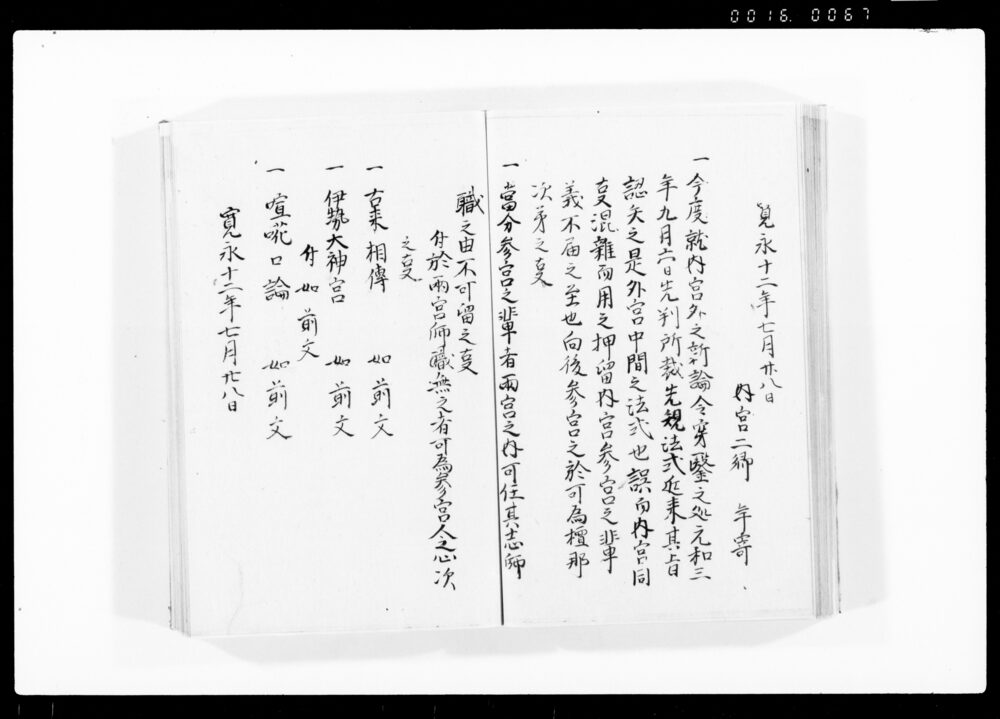 0016. 0067
寛永十二年七月廿八日
内宮二郷 年寄
一 今度就内宮外之諍論令穿鑿之処元和三
年九月六日先判所裁先規法式近来其上日
認矣之是外宮中間之法式也誤而内宮同
叓混雑而用之押留内宮参宮之輩
義不届之至也向後参宮之於可為檀那
次第之叓
一 當分参宮之輩者両宮之内可任其志師
職之由不可留之叓
付於両宮師職無之者可為参宮人之心次
之叓
一 古来相傳 如前文
一 伊勢大神宮 如前文
付 如前文
一 喧嘩口論 如前文
寛永十二年七月廿八日